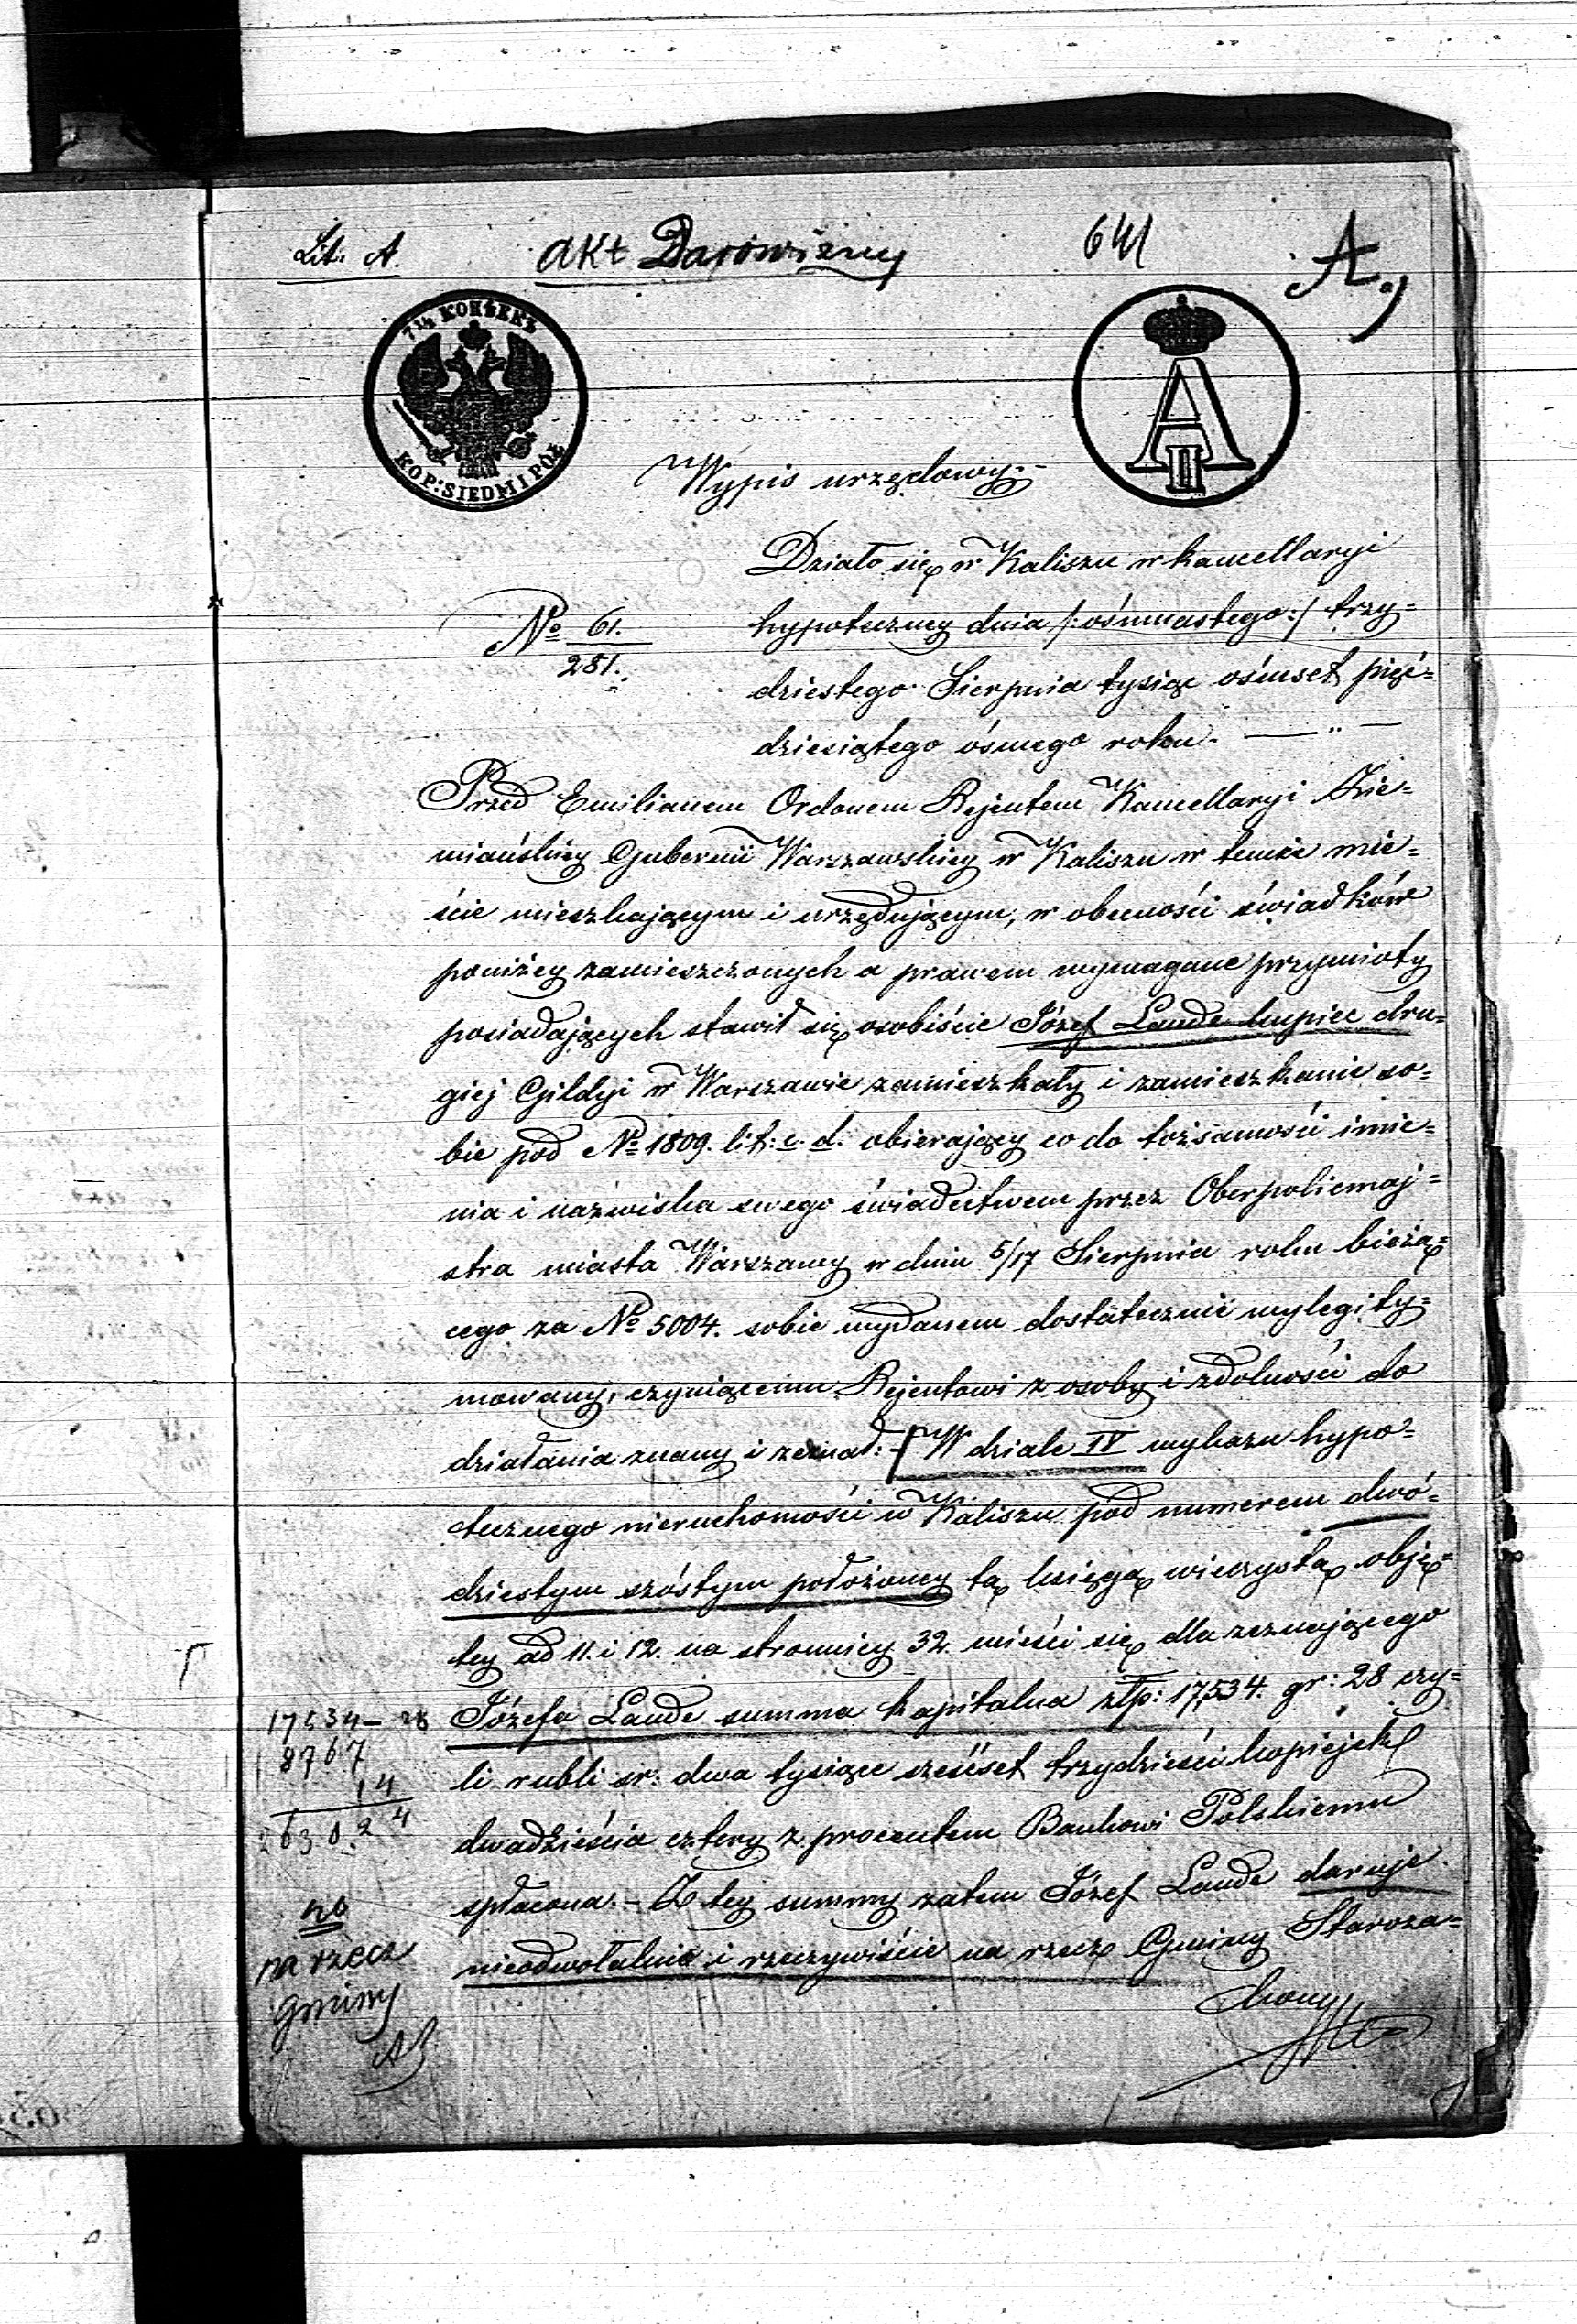 Lit: A. akt Darowizny 641 A.)
7 ½ КОПѢЕКЪ
KOP: SIEDM I PÓŁ
A II
Wypis urzędowy.-
Działo się w Kaliszu w kancellaryi
No 61. hypoteczney dnia /:ośmnastego:/ trzy=
281. dziestego Sierpnia tysiąc ośmset pięć=
dziesiątego ósmego roku. — " —
Przed Emilianem Ordonem Rejentem Kancellaryi Zie=
miańskiey Gubernii Warszawskiey w Kaliszu w temże mie=
ście mieszkającym i urzędującym, w obecności świadków
poniżey zamieszczonych a prawem wymagane przymioty
posiadających stawił się osobiście Józef Laude kupiec dru=
giej Gildyi w Warszawie zamieszkały i zamieszkanie so=
bie pod No 1809. lit: c. d. obierający co do tożsamości imie=
nia i nazwiska swego świadectwem przez Oberpolicmaj=
stra miasta Warszawy w dniu 5/17 Sierpnia roku bieżą=
cego za No 5004. sobie wydanem dostatecznie wylegity=
mowany, czyniącemu Rejentowi z osoby i zdolności do
działania znany i zeznał: W dziale IV wykazu hypo=
tecznego nieruchomości w Kaliszu pod numerem dwó=
dziestym szóstym położoney tą księgą wieczystą obję=
tey ad 11. i 12. na stronnicy 32. mieści się dla zeznającego
17534 – 28 Józefa Laude summa kapitalna złp: 17,534. gr: 28 czy=
8767 li rubli sr: dwa tysiące sześćset trzydzieści kopiejek
14
2630.24 dwadzieścia cztery z procentem Bankowi Polskiemu
spłacona. – Z tey summy zatem Józef Laude daruje
na rzecz nieodwołalnie i rzeczywiście na rzecz Gminy Staroza=
gminy konney